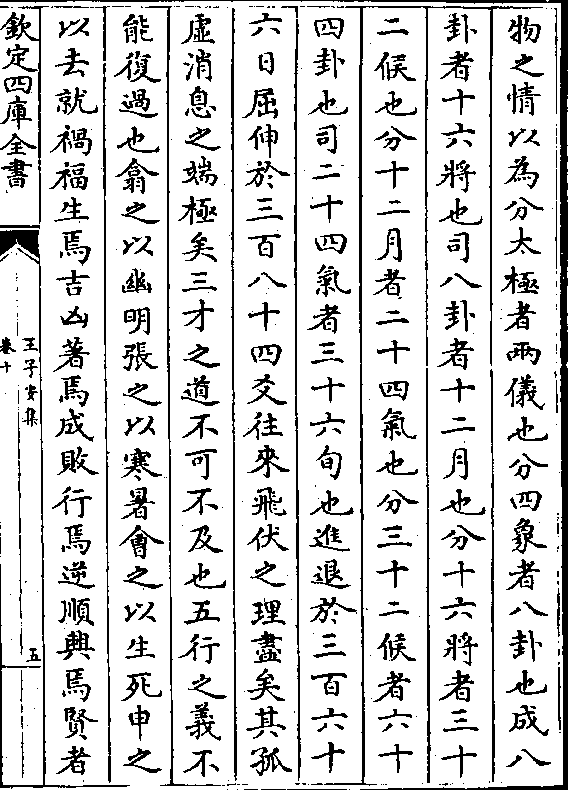 物之情以為分太極者兩儀也分四象者八卦也成八
卦者十六將也司八卦者十二月也分十六將者三十
二候也分十二月者二十四氣也分三十二候者六十
四卦也司二十四氣者三十六旬也進退於三百六十
六日屈伸於三百八十四爻往來飛伏之理盡矣其孤
虛消息之端極矣三才之道不可不及也五行之義不
能復過也翕之以幽明張之以寒暑會之以生死申之
以去就禍福生焉吉凶著焉成敗行焉逆順興焉賢者
欽定四庫全書
王子安集
卷十
五